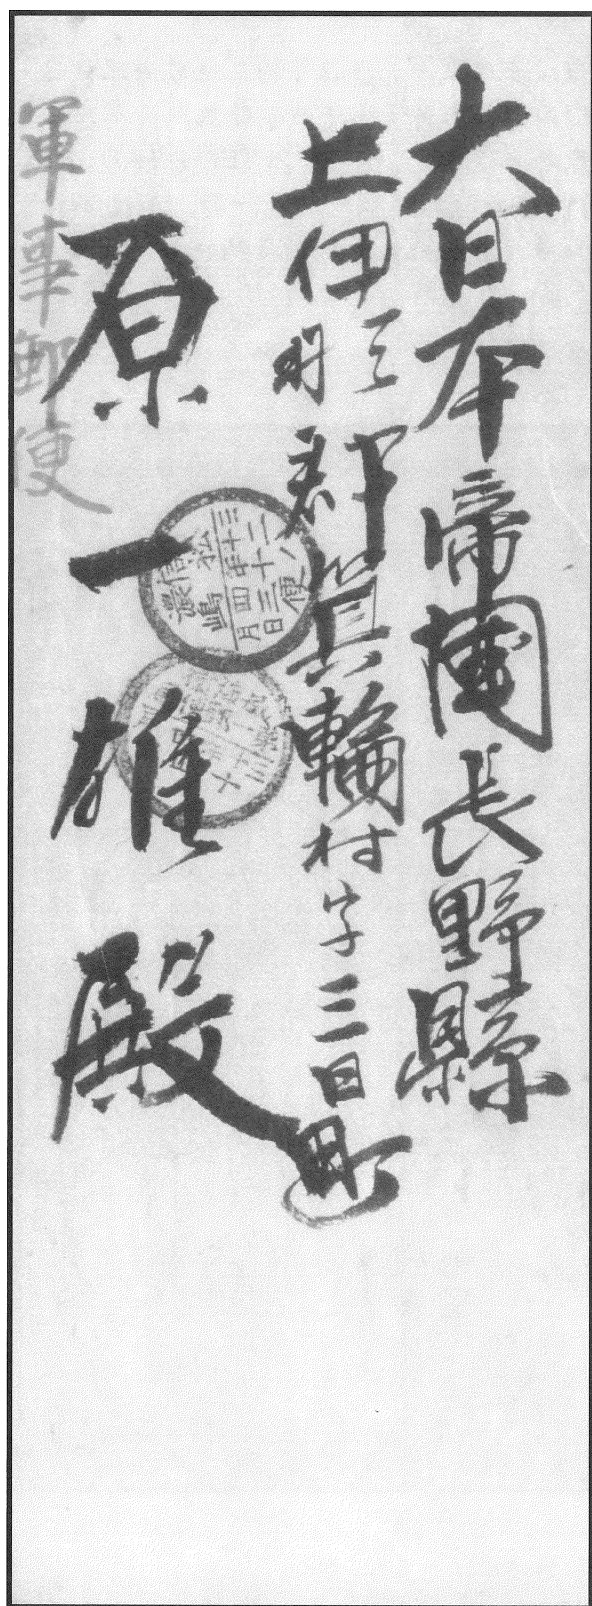 大日本帝國長野縣
上伊那郡箕輪村字三日町
原一雄殿
軍事郵便
信濃
松嶋